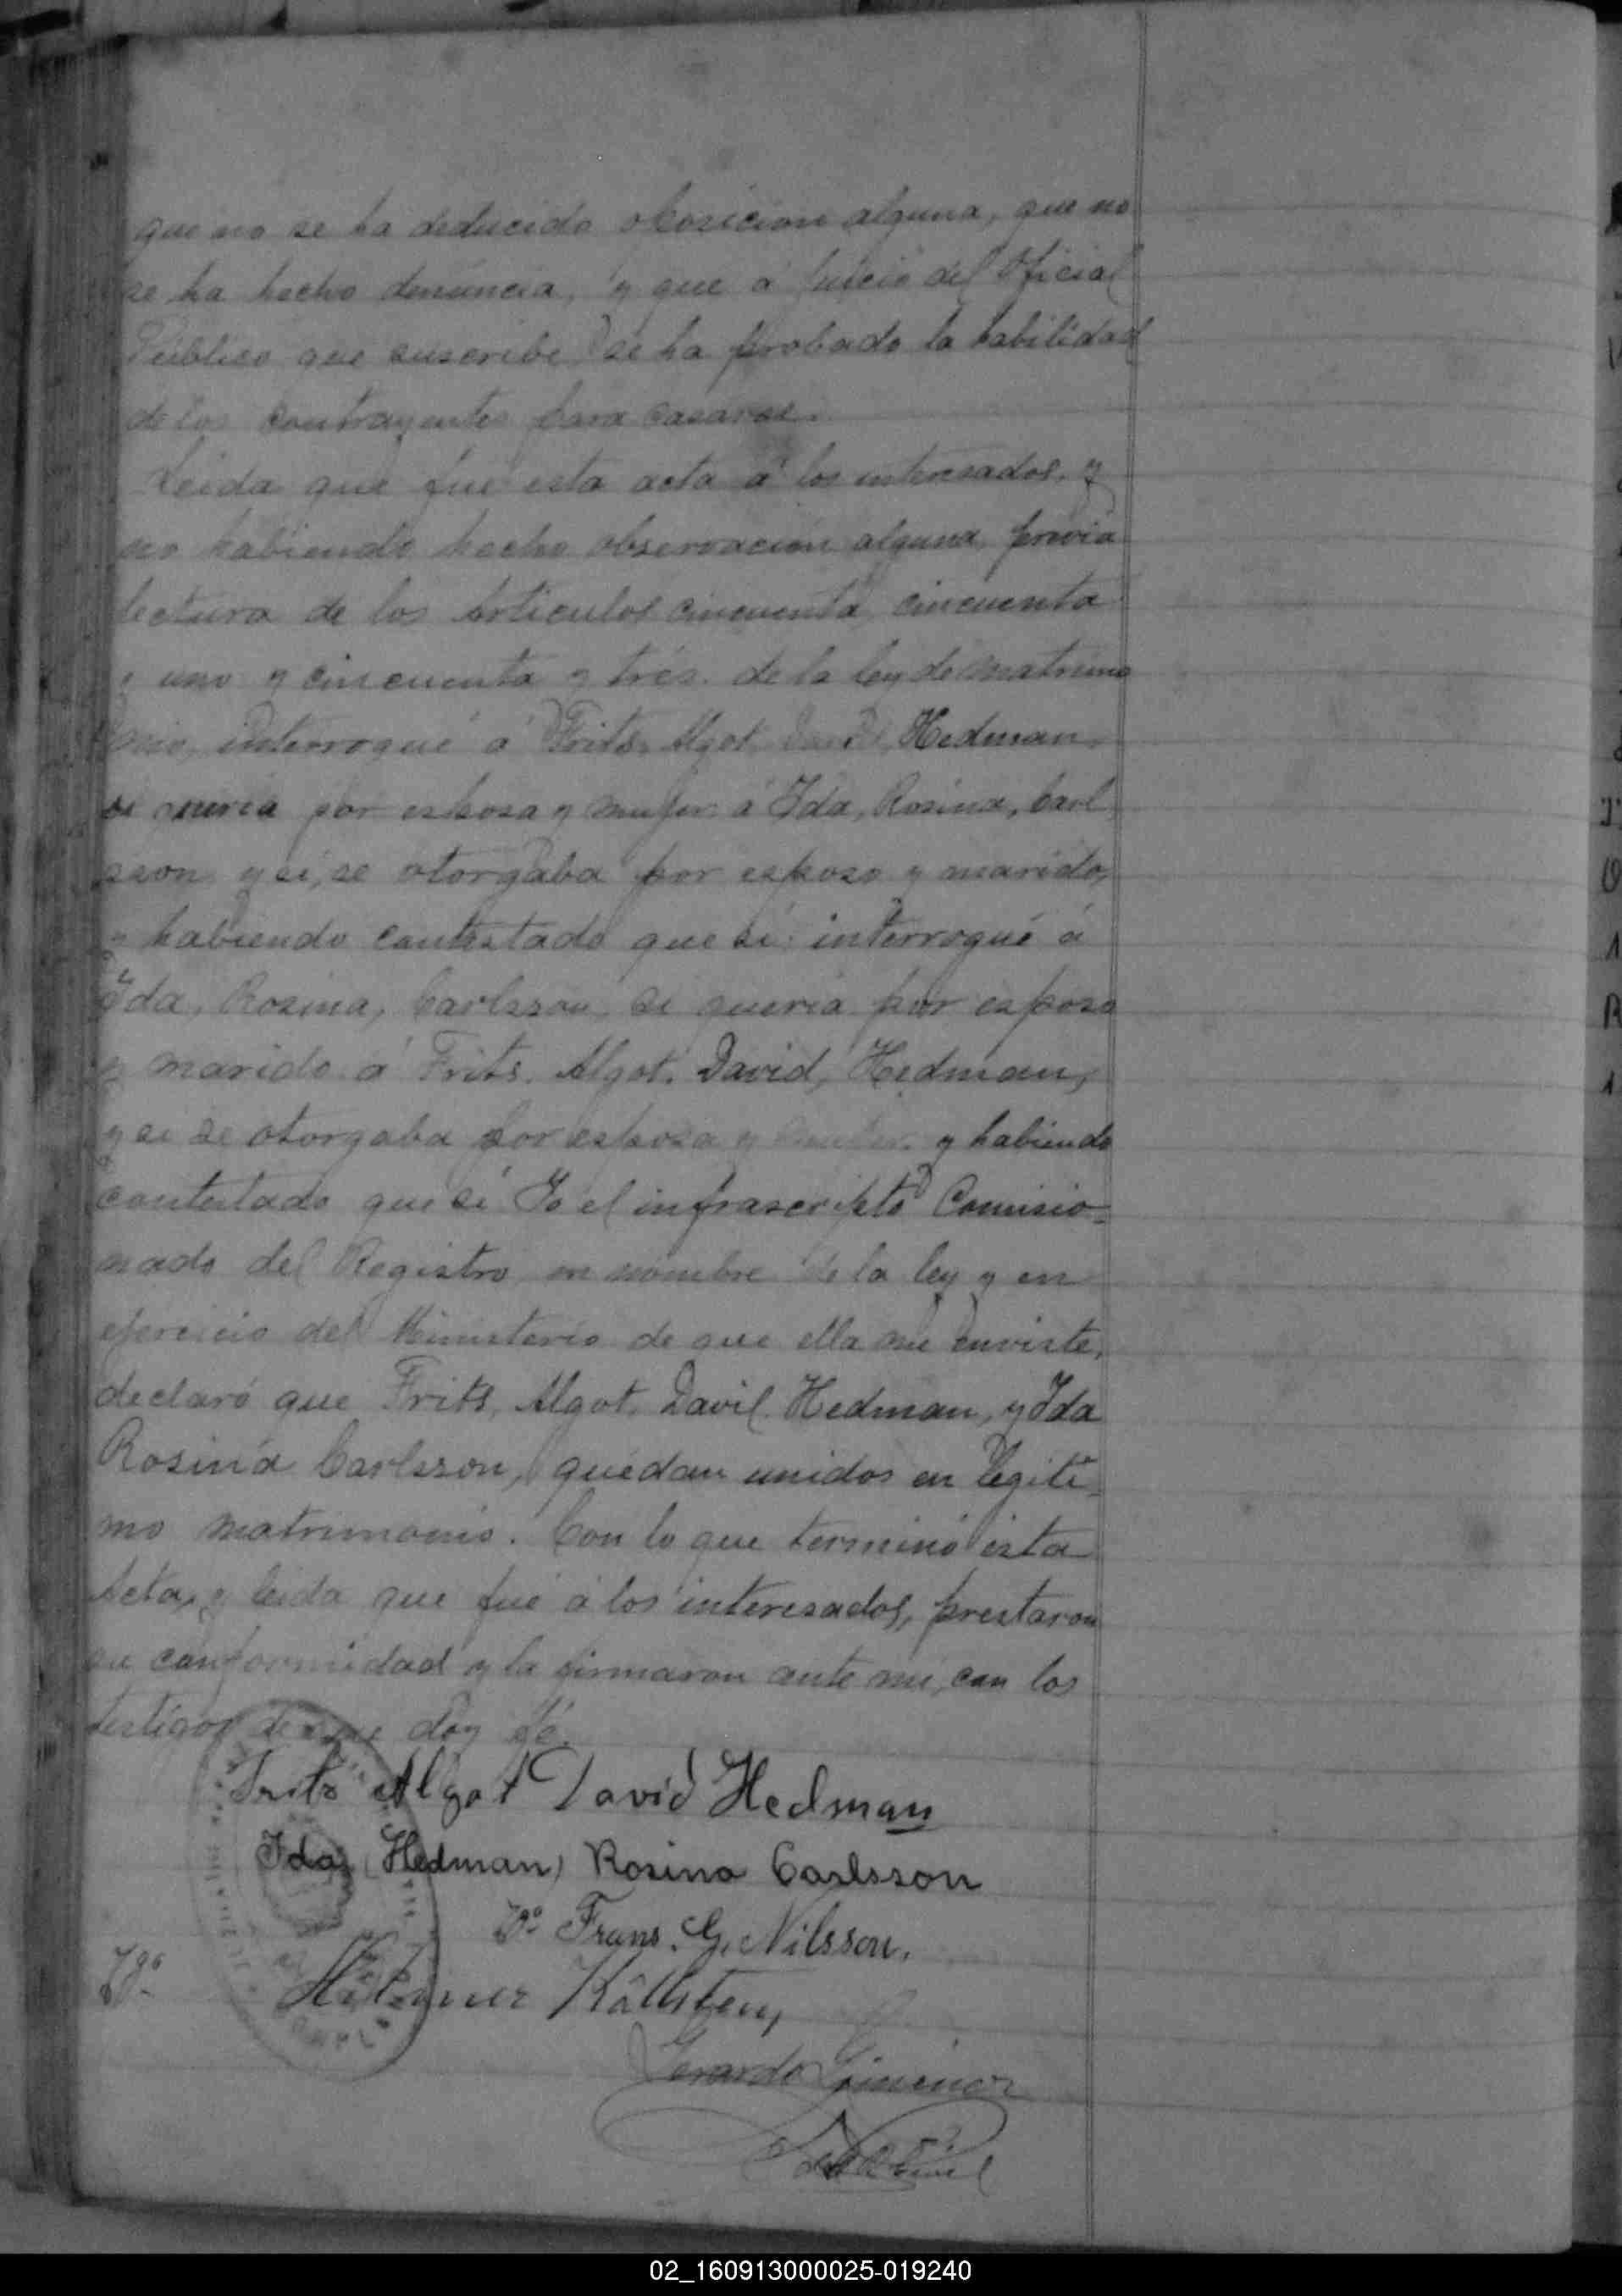 que no se ha deducido oposicion alguna, que no
se ha hecho denuncia, y que á juicio del Oficial
Público que suscribe, se ha probado la habilidad
de los contrayentes para casarse.
Leida que fué esta acta á los interesados, y
no habiendo hecho observacion alguna, prévia
lectura de los Articulos cincuenta, cincuenta
y uno y cincuenta y trés de la ley de matrimo
nio, interrogué á Frits, Algot, David, Hedman,
si queria por esposa y mujer á Ida, Rosina, Carl
sson y si, se otorgaba por esposo y marido,
y habiendo contestado que sí interrogué á
Ida, Rosina, Carlsson, si queria por esposo
y marido á Frits. Algot. David, Hedman,
y si se otorgaba por esposa y mujer y habiendo
contestado que sí Yo el infrascripto Comisio=
nado del Registro, en nombre de la ley y en
ejercicio del Ministerio de que ella me enviste,
declaró que Frits, Algot, Davil. Hedman, y Ida
Rosina Carlsson, quedan unidos en legiti
mo matrimonio. Con lo que terminó esta
Acta, y leida que fué á los interesados, prestaron
su conformidad y la firmaron ante mi, con los
testigos de que doy fé.
Frits Algot David Hedman
Ida (Hedman) Rosina Carlsson
Tgo Frans. G. Nilsson.
Tgo Källsten,
Gerardo Gimenez
02_160913000025-019240